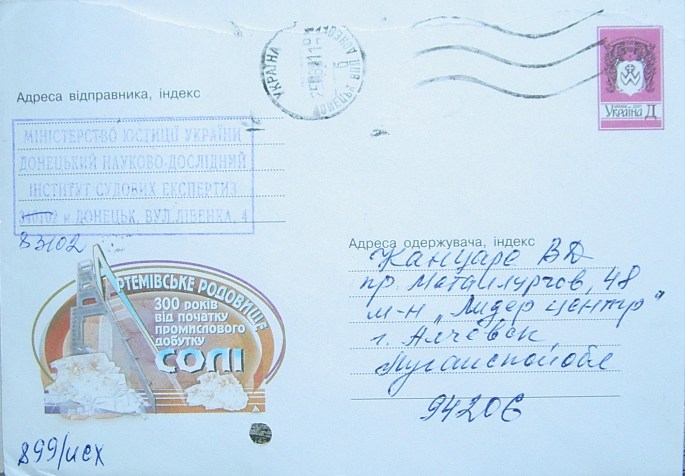 Адреса відправника, індекс
МІНІСТЕРСТВО ЮСТИЦІЇ УКРАЇНИ
ДОНЕЦЬКИЙ НАУКОВО-ДОСЛІДНИЙ
ІНСТИТУТ СУДОВИХ ЕКСПЕРТИЗ
340102 м ДОНЕЦЬК, ВУЛ.ЛІВЕНКА, 4
83102
УКРАЇНА
ДОНЕЦЬК
Україна Д
АРТЕМІВСЬКЕ РОДОВИЩЕ
300 РОКІВ
ВІД ПОЧАТКУ
ПРОМИСЛОВОГО
ДОБУТКУ
СОЛІ
899/исх
Адреса одержувача, індекс
Канцаро ВД
пр. Металлургов, 48
м-н „Лидер центр"
г. Алчевск
Луганской обл
94206